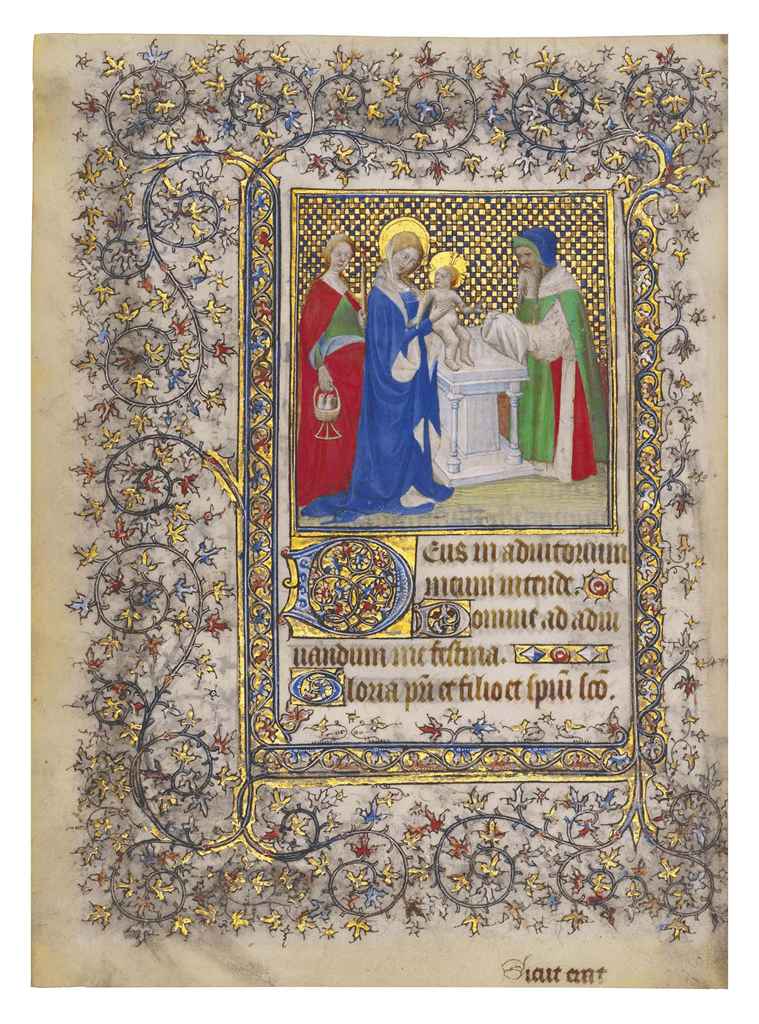 Deus in adiutorium
meum intende.
Domine ad adiu
uandum me festina.
Gloria pri et filio et spiui sco.
Sicut erat